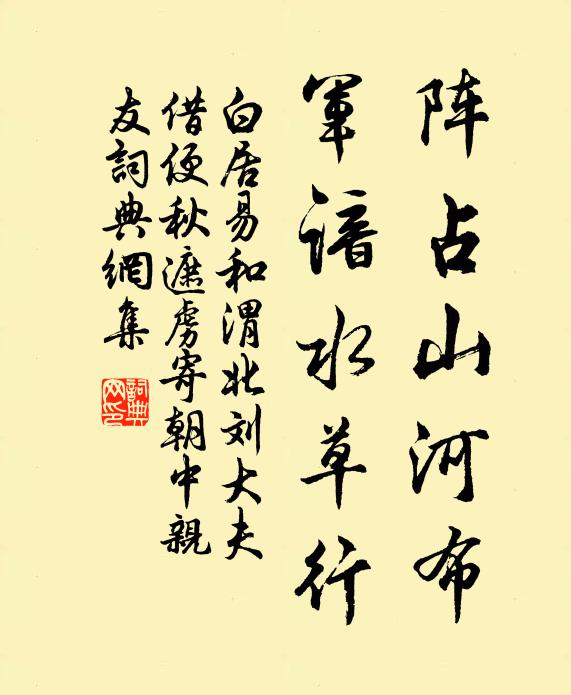 阵占山河布
军谙水草行
白居易和渭北刘大夫
借便秋遮虏寄朝中親
友詞典網集
詞典网印